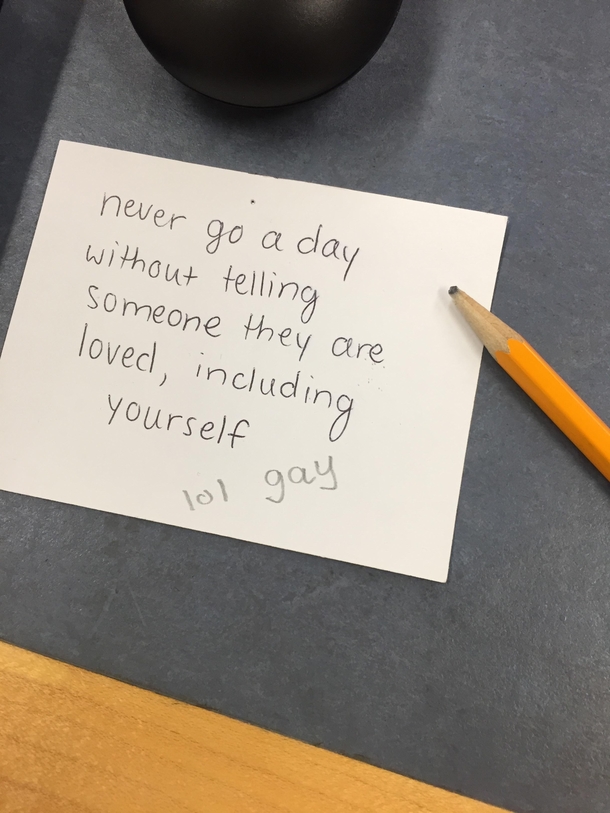 never go a day
without telling
someone they are
loved, including
yourself
lol gay